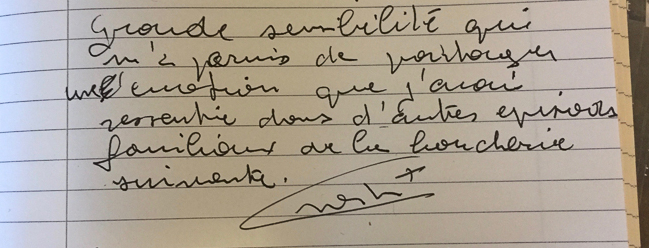 Grande sensibilité qui
m'a permis de partager
une émotion que j'avai
ressentie dans d'autres episodes
familiaux de la boucherie
suivante.